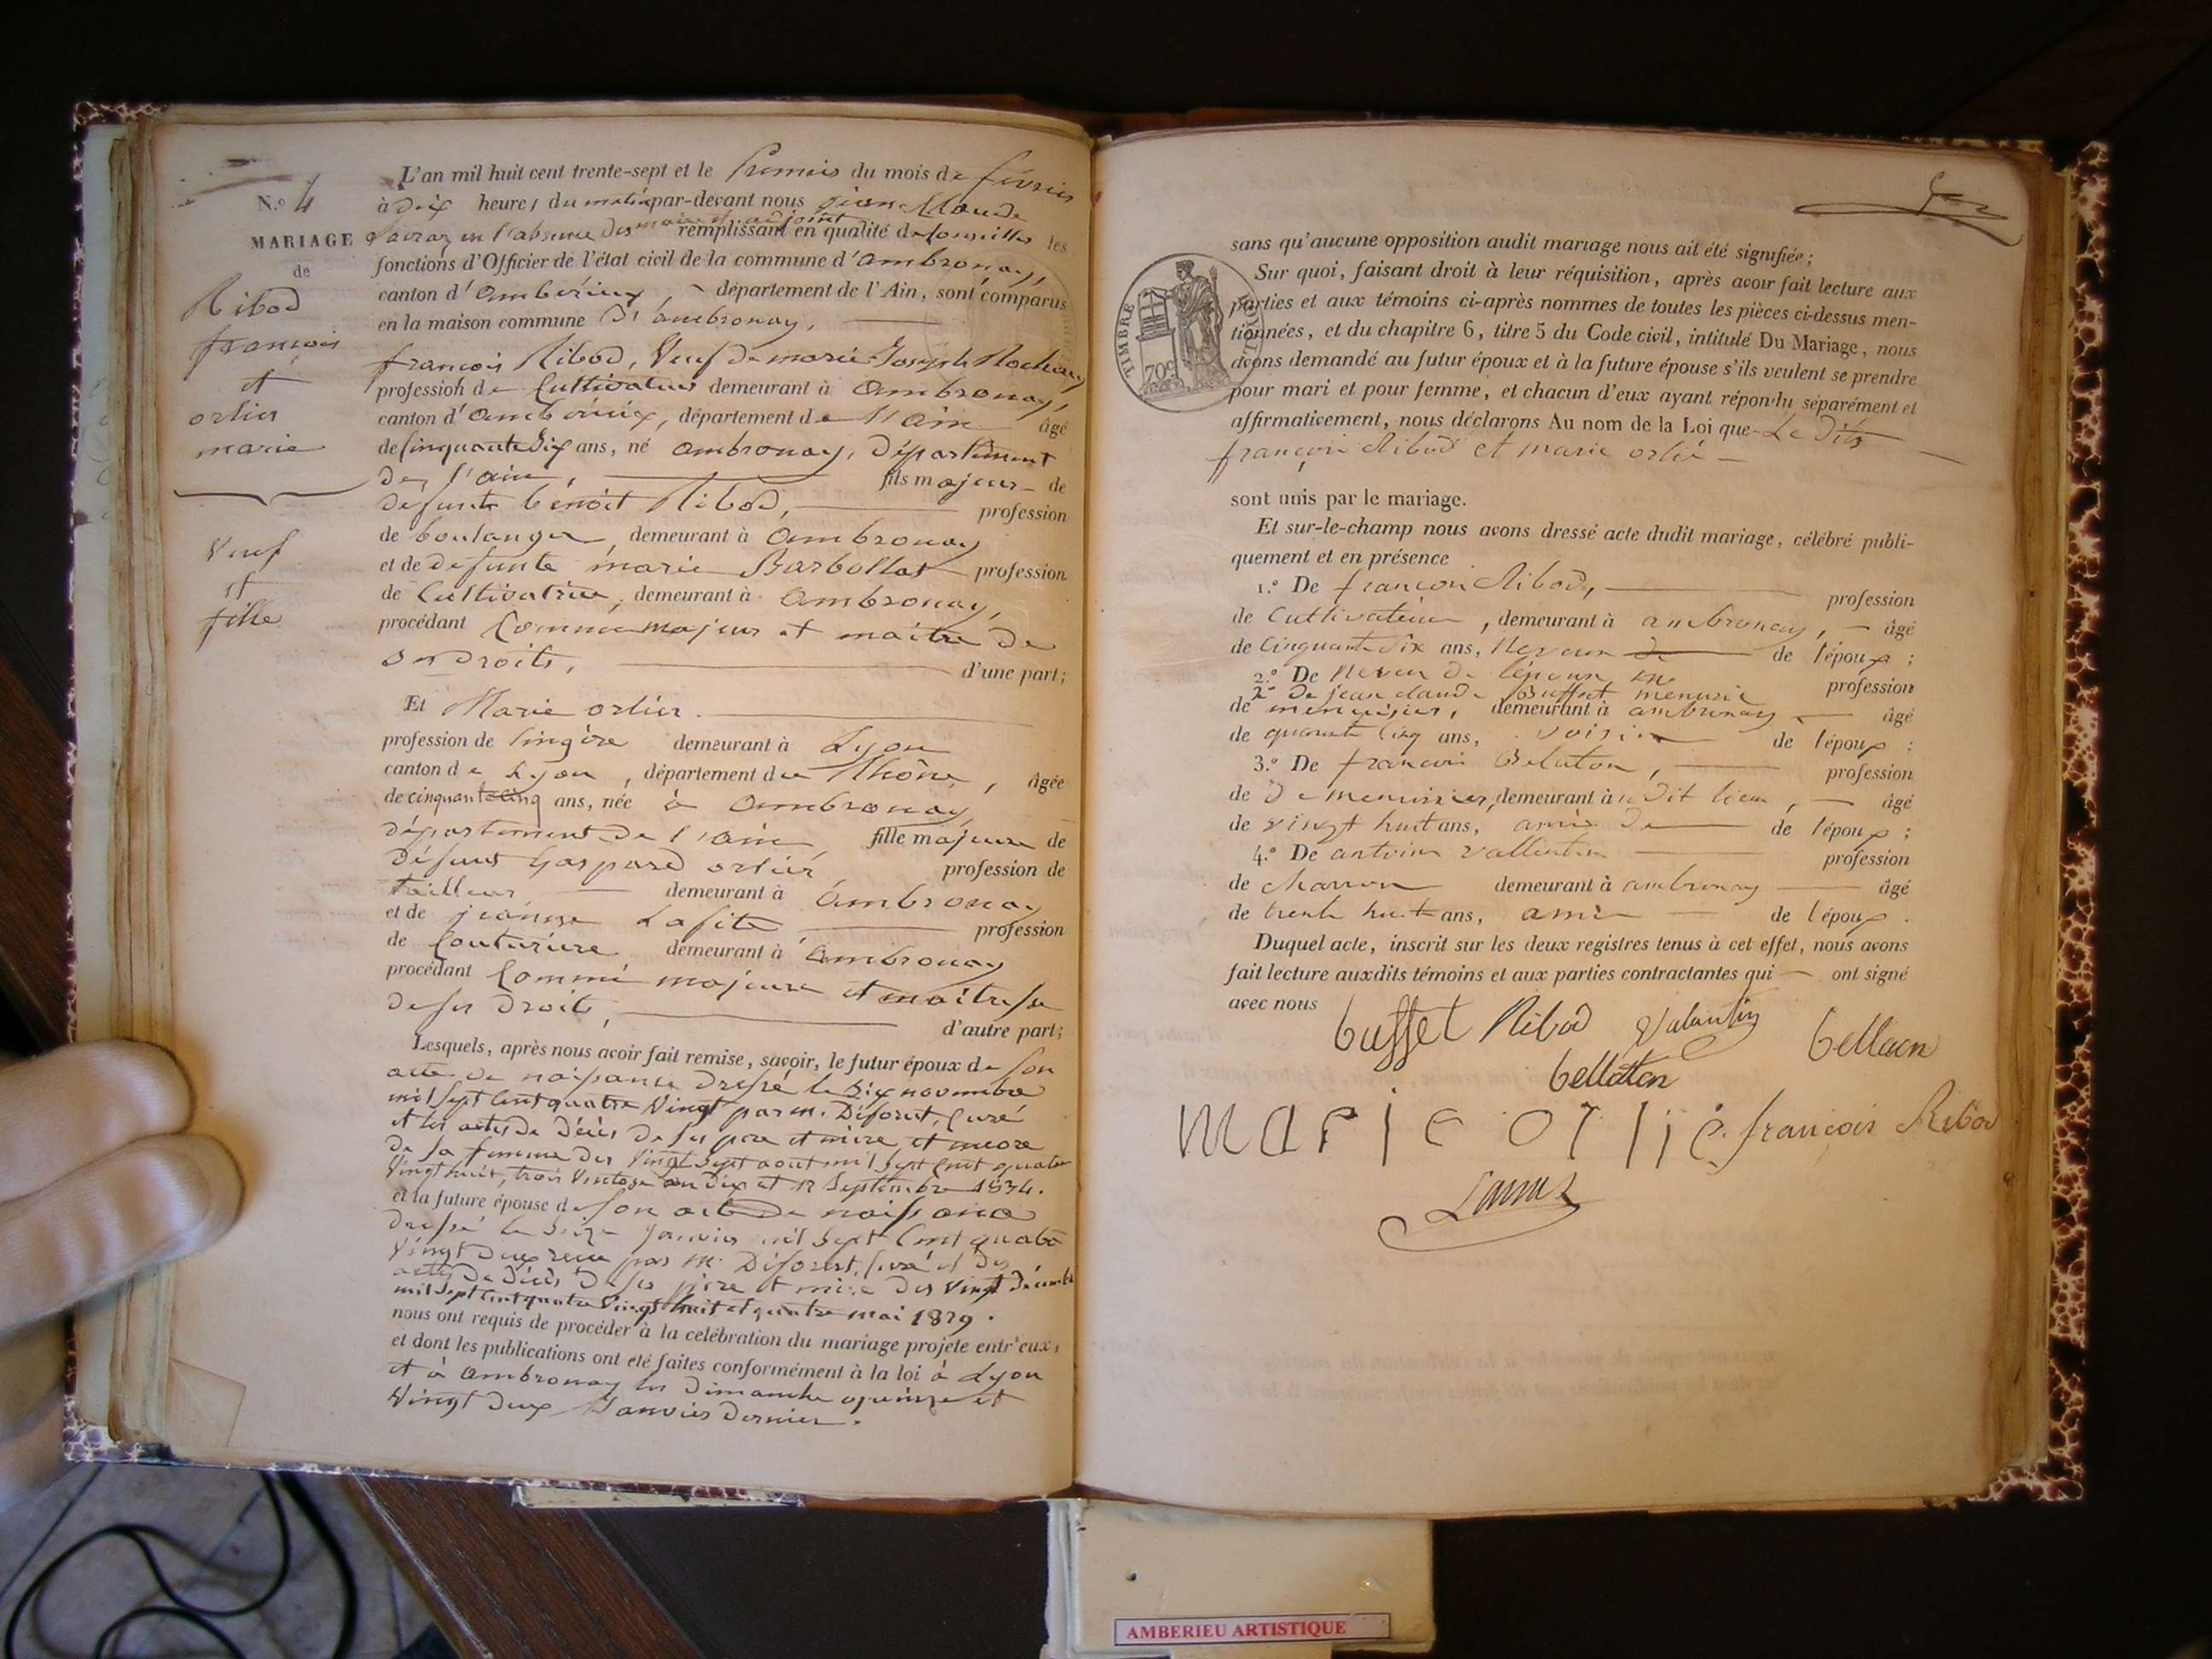 N.o 4
MARIAGE
de
Ribod
françois
et
orlier
marie
Veuf
et
fille
L'an mil huit cent trente-sept et le Premier du mois de février
à dix heures du matin par-devant nous jean Claude
en l'absence des maire et adjoint remplissant en qualité de Conseiller les
fonctions d'Officier de l'état civil de la commune d'ambronay,
canton d'ambérieux, département de l'Ain, sont comparus
en la maison commune d'ambronay,
françois Ribod, Veuf de marie Joseph
profession de Cultivateur demeurant à ambronay,
canton d'ambérieux, département de l'ain âgé
de cinquante six ans, né ambronay, département
de l'ain, fils majeur de
defunt benoit Ribod, profession
de boulanger, demeurant à ambronay
et de defunte marie Barbollat profession
de Cultivatrice, demeurant à ambronay,
procédant Comme majeur et maitre de
ses droits, d'une part;
Et Marie orlier
profession de lingère demeurant à Lyon
canton de Lyon, département du Rhône, âgée
de cinquante cinq ans, née à ambronay
département de l'ain fille majeure de
défunt Gaspard orlier profession de
tailleur demeurant à ambronay
et de jeanne Lafite profession
de Couturière demeurant à ambronay
procédant Comme majeure et maitresse
de ses droits, d'autre part;
Lesquels, après nous avoir fait remise, savoir, le futur époux de son
acte de naissance dressé le dix novembre
mil sept cent quatre vingt par m. Diforest, Curé
et les actes de décès de ses père et mère et encore
de sa femme des vingt sept aout mil sept cent quatre
Vingt huit, trois Ventose an dix et 12 Septembre 1834.
et la future épouse de son acte de naissance
dressé le seize janvier mil sept cent quatre
vingt deux reçu par m. Diforest, curé et des
actes de décès de ses père et mère des vingt décembre
mil sept cent quatre vingt huit et quatre mai 1829.
nous ont requis de procéder à la celébration du mariage projeté entr'eux,
et dont les publications ont été faites conformément à la loi à Lyon
et à ambronay les dimanche quinze et
vingt deux Janvier dernier.
sans qu'aucune opposition audit mariage nous ait été signifiée;
Sur quoi, faisant droit à leur réquisition, après avoir fait lecture aux
parties et aux témoins ci-après nommes de toutes les pièces ci-dessus men-
tionnées, et du chapitre 6, titre 5 du Code civil, intitulé Du Mariage, nous
avons demandé au futur époux et à la future épouse s'ils veulent se prendre
pour mari et pour femme, et chacun d'eux ayant répondu séparément et
affirmativement, nous déclarons Au nom de la Loi que Le dits
françois Ribod et marie orlié
sont unis par le mariage.
Et sur-le-champ nous avons dressé acte dudit mariage, célébré publi-
quement et en présence
1.o De françois Ribod, profession
de Cultivateur, demeurant à ambronay, âgé
de Cinquante six ans, Neveux de de l'époux;
2.o De Neveu de l'époux profession
2o De jean claude Buffet menusie
de menuisier, demeurant à ambronay âgé
de quarante cinq ans, voisin de l'époux;
3.o De francois Belaton, profession
de de menuisier, demeurant à u dit lieu, âgé
de vingt huit ans, amie de de l'époux;
4.o De antoine vallentin profession
de charron demeurant à ambronay âgé
de trente huit ans, ami de l'époux.
Duquel acte, inscrit sur les deux registres tenus à cet effet, nous avons
fait lecture auxdits témoins et aux parties contractantes qui ont signé
avec nous
buffet Ribod Valantin
bellaton
marie orlié. françois Ribod
TIMBRE ROYAL
70c
AMBERIEU ARTISTIQUE